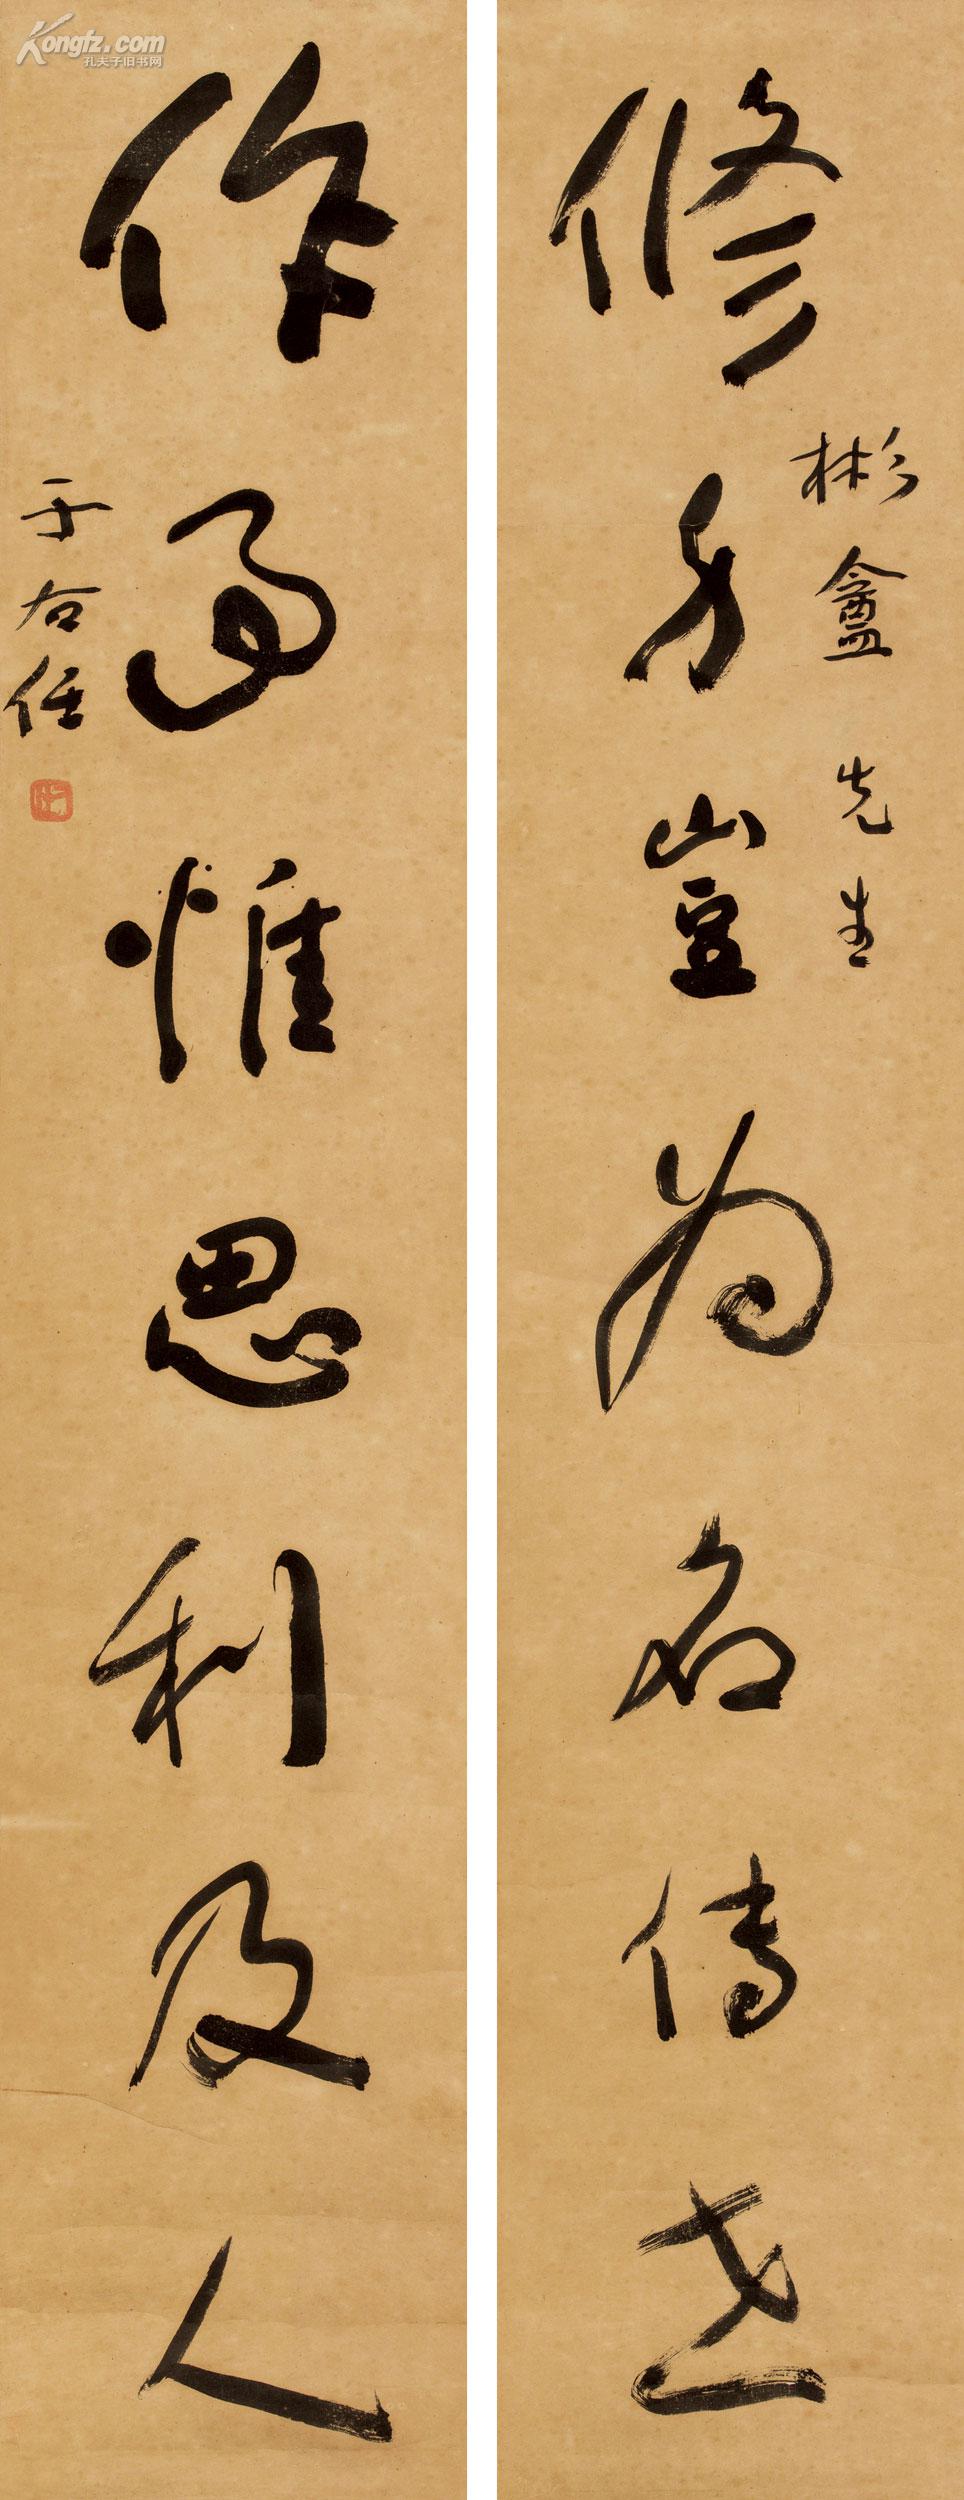 修身豈為名傳世
彬盦先生
作事惟思利及人
于右任
Kongfz.com
孔夫子旧书网